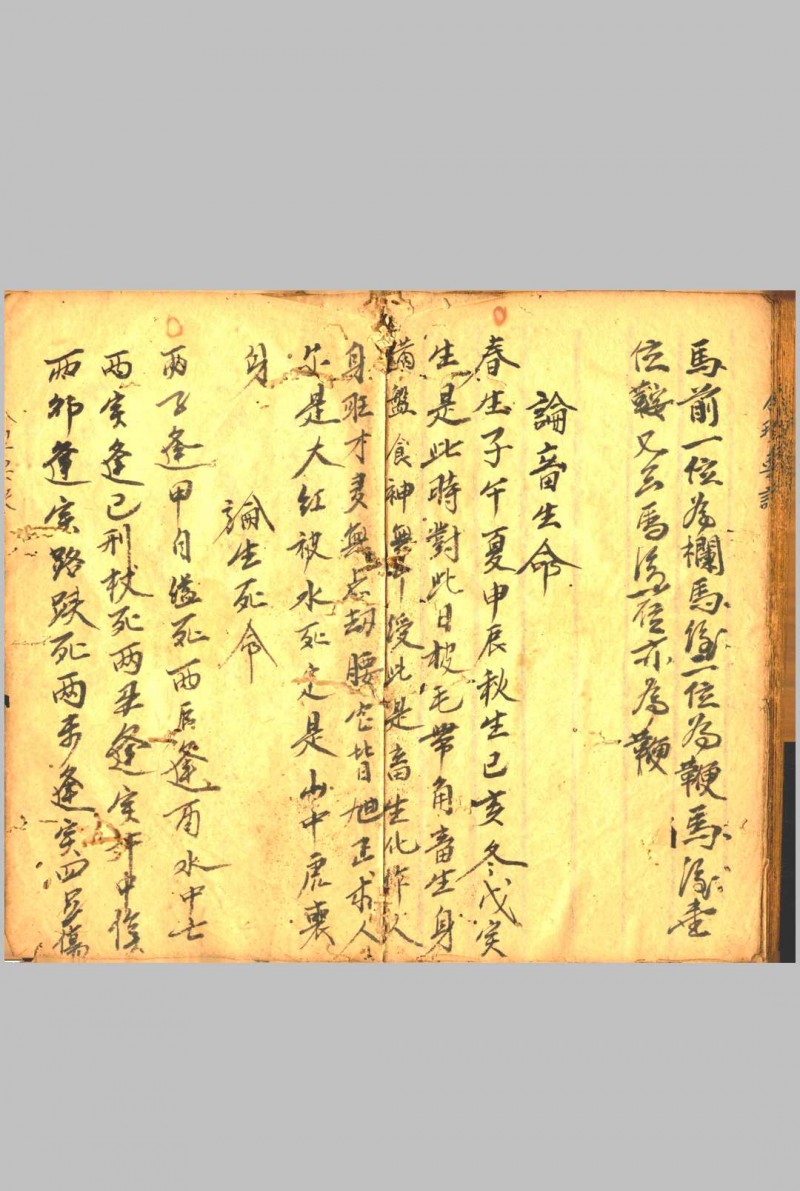 馬前一位為欄馬後一位為鞭馬後壹
位鞍又云馬後一位亦為鞭
論畜生命
春生子午夏申辰秋生已亥冬戊寅
生是此時對此日披毛帶角畜生身
滿盤食神無 授此是畜生化作人
身旺才多無 劫腰 皆 正求人
不是大红被水死定是山中虎喪
身
論生死命
两子逢甲自缢死两辰逢酉水中亡
两寅逢已刑杖死两丑逢寅 中
两卯逢寅路跌死两未逢寅四 傷